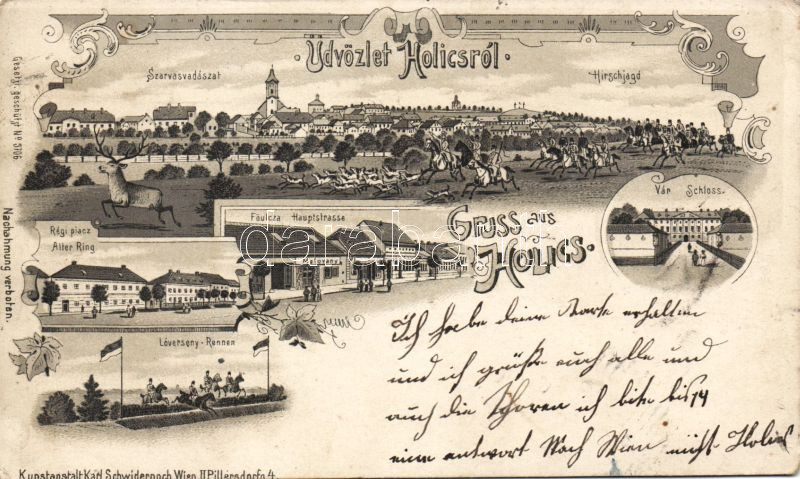 Üdvözlet Holicsról
Szarvasvadászat
Hirschjagd
Gesetzl. geschützt No 5106
Nachahmung verboten.
Vár Schloss.
Régi piacz
Alter Ring
Föutcza Hauptstrasse
Gruss aus
Holics.
Lóverseny-Rennen
Ich habe deine Karte erhalten
und ich grüße euch alle und
auch die ich bite bis 14
eine antwort Nach Wien nicht Holics
Kunstanstalt Karl Schwidernoch Wien II Pillersdorfg 4.
darabanth